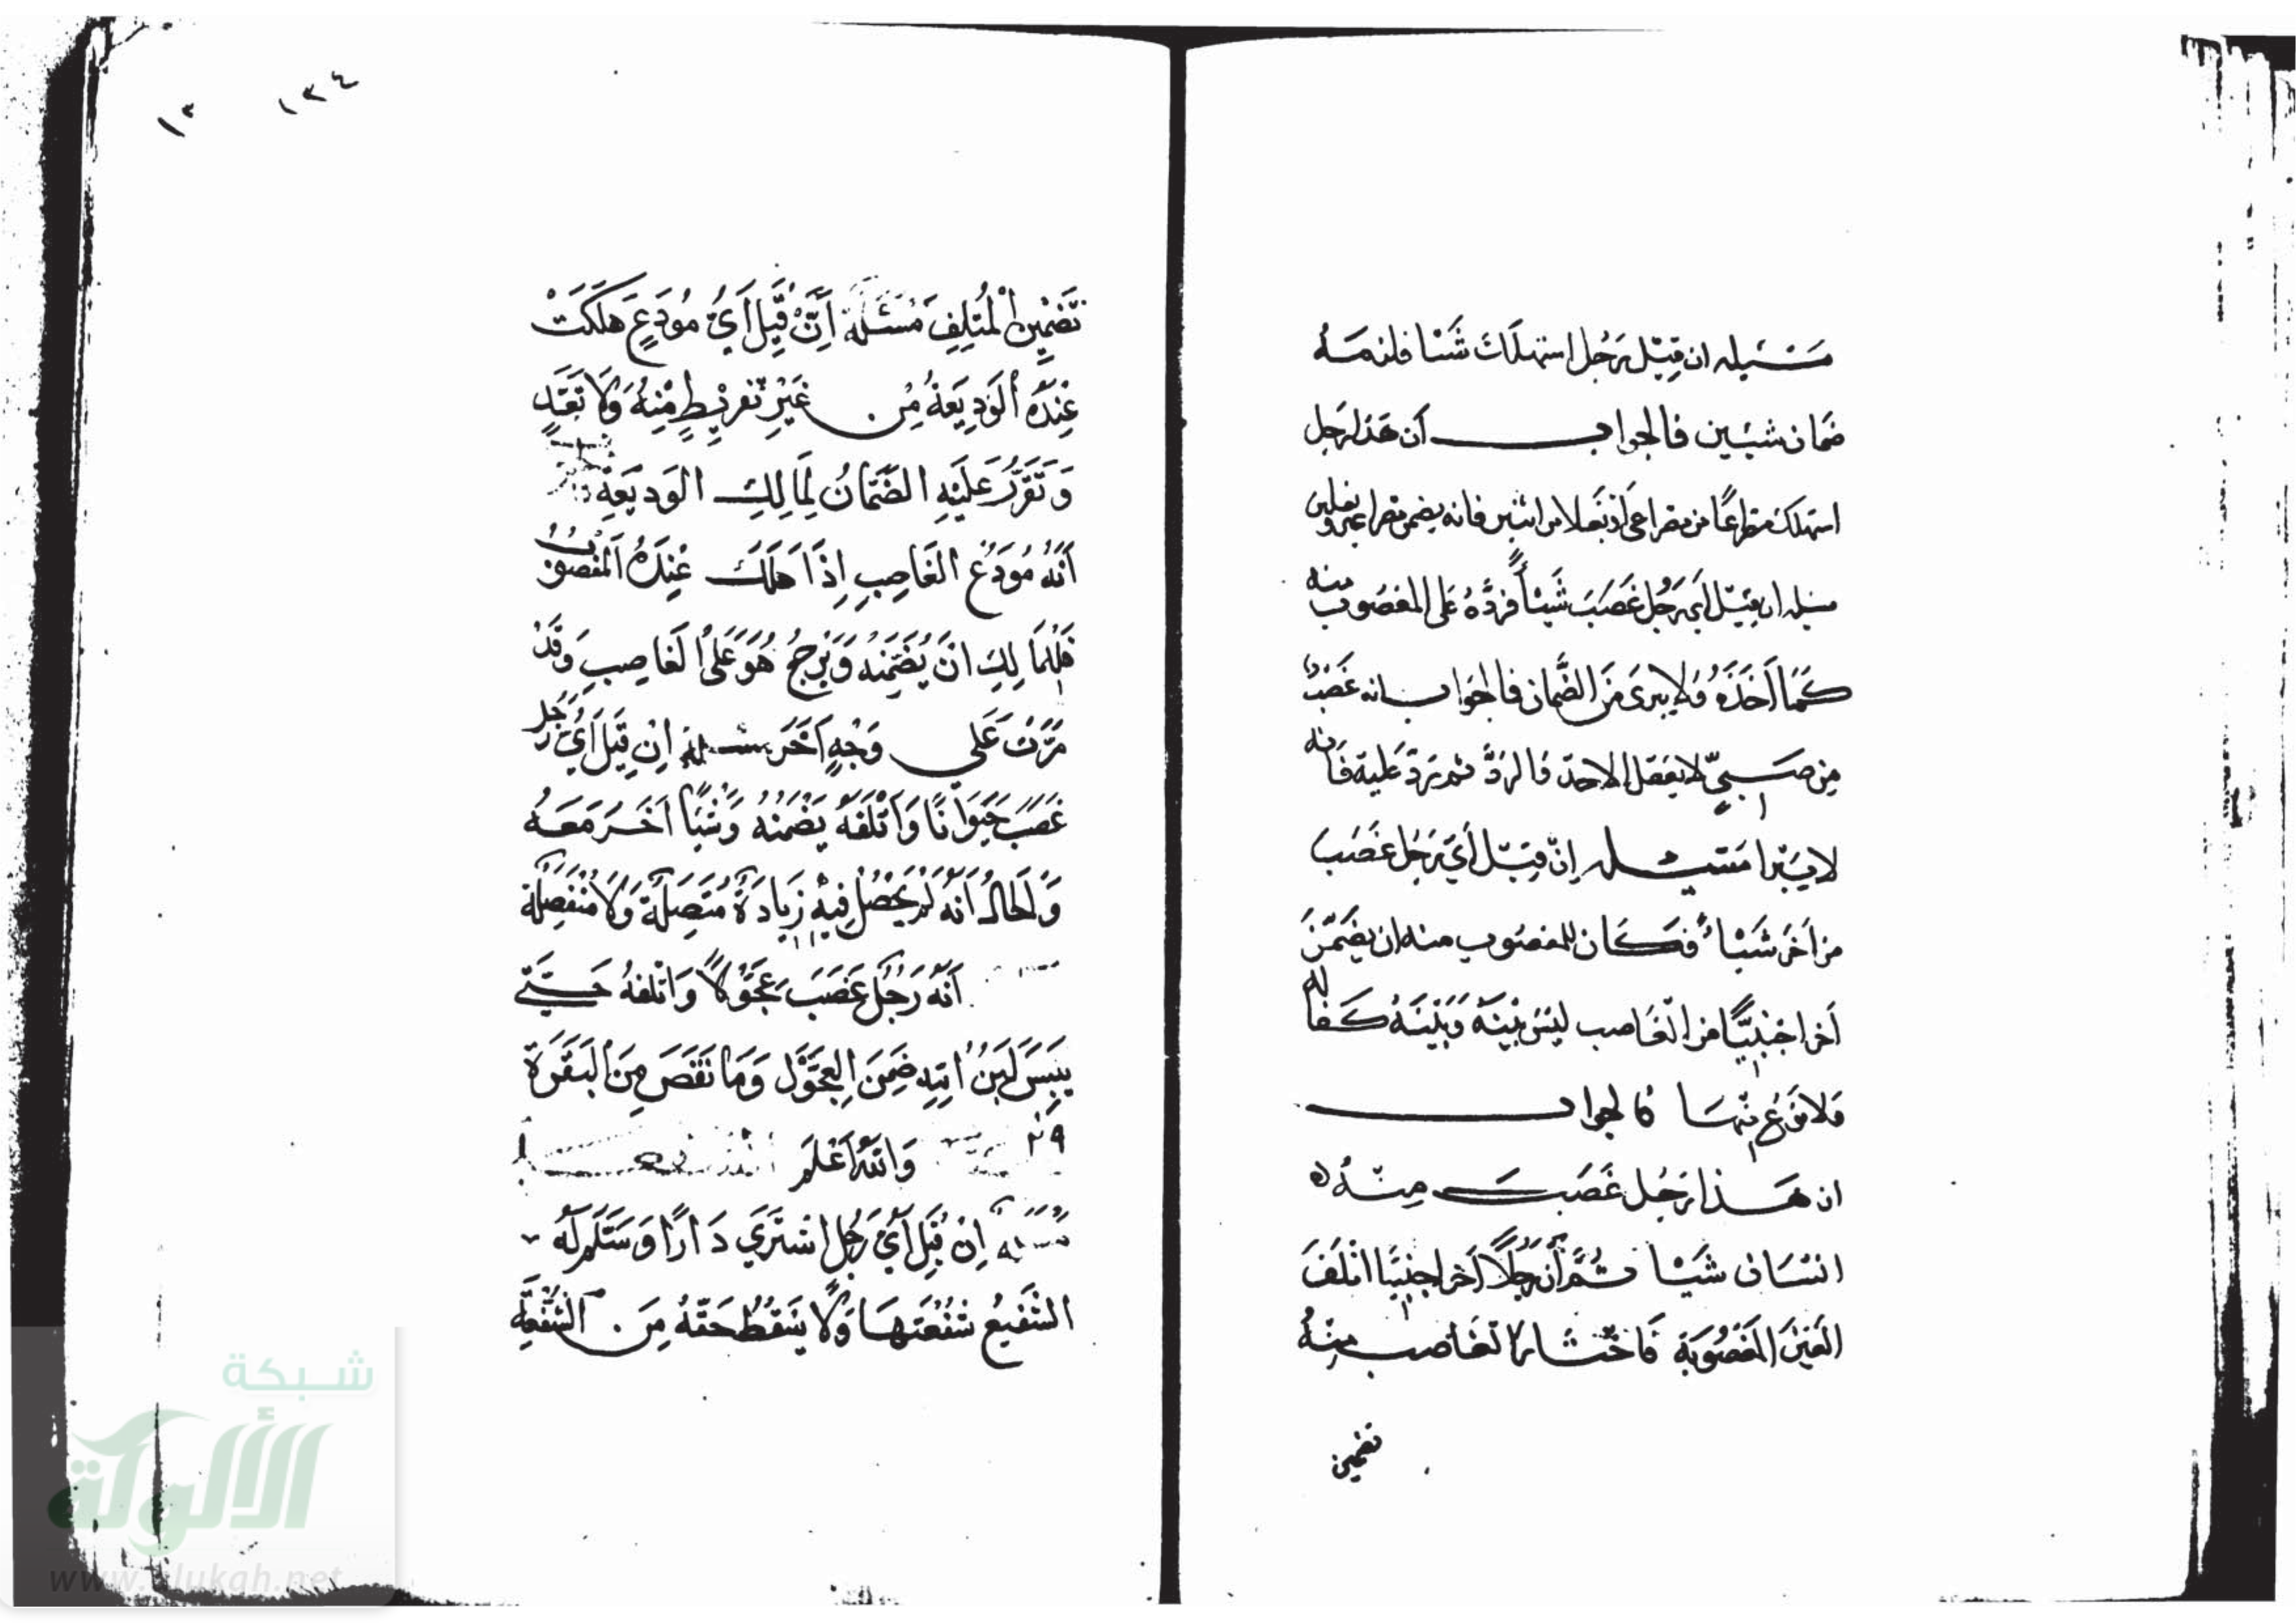 مسئله ان قيل رجل استهلك شيئا فلزمه
ضمان شيئين فالجواب أن هذا رجل
استهلك مصراعا من مصراعي او نعلا من اثنين فانه يضمن مصراعين ونعلين
مسئله ان قيل أي رجل غصب شيئاً فردّه على المغصوب منه
كما أخذه ولا يبرى من الضمان فالجواب انه غصب
من صبيّ لا يعقل الاخذ والردّ ثم يرد عليه فانه
لا يبرا مسئله إن قيل أي رجل غصب
من اخر شيئاً فكان للمغصوب منه ان يضمن
اخر اجنبيًّا من الغاصب ليس بينه وبينه كفاله
ولا فرع منها فالجواب
ان هذا رجل غصب منه
انسان شيئا ثم أن رجلاً اخر اجنبيا اتلف
العين المغصوبة فاختار الغاصب منه
تضمين
١٣٤
١٣
تضمين المتلف مسئلة ان قيل اي مودع هلكت
عنده الوديعة من غير تفريط منه ولا تعد
وتقرر عليه الضمان لمالك الوديعة
أنه مودع الغاصب إذا هلك عنده المغصوب
فللمالك ان يضمنه ويرجع هو على الغاصب وقد
مرت على وجه آخر مسئلة ان قيل أي رجل
غصب حيوانًا واتلفه يضمنه وشيئا آخر معه
والحال أنه لم يحصل فيه زيادة متصلة ولا منفصلة
أنه رجل غصب عجولًا واتلفه حتى
يبس لبن امه ضمن العجول وما نقص من البقرة
والله أعلم
مسئله ان قيل أي رجل اشترى دارًا وسلم له
الشفيع شفعتها ولا يسقط حقه من الشفعة
شبكة
الألوكة
www.alukah.net